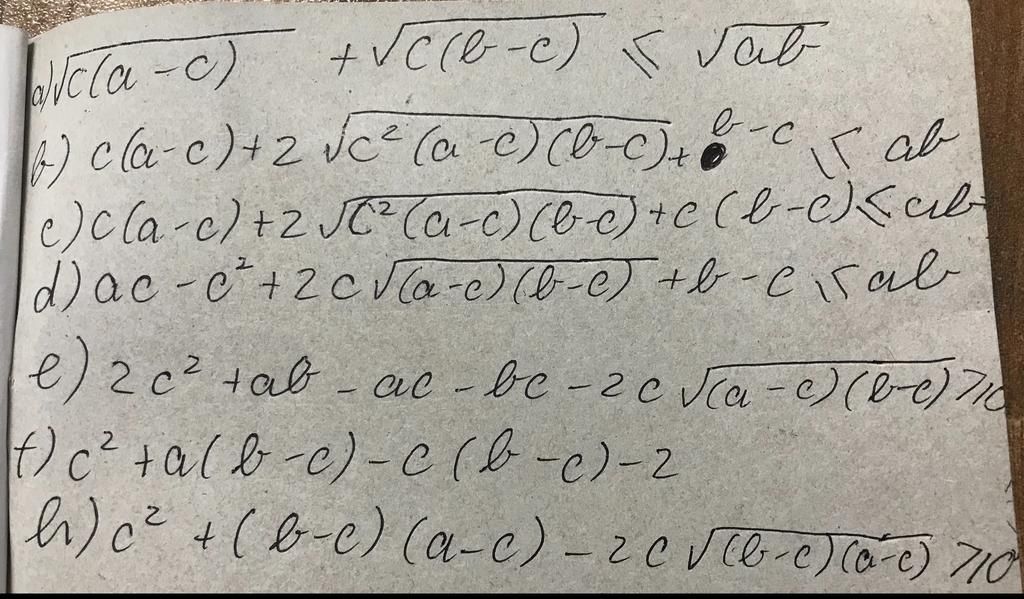 a) √c(a-c) + √c(b-c) ⩽ √ab
b) c(a-c)+2 √c²(a-c)(b-c) + b-c ⩽ ab
c) c(a-c)+2 √c²(a-c)(b-c) + c(b-c) ⩽ ab
d) ac - c² + 2c√(a-c)(b-c) + b - c ⩽ ab
e) 2c² + ab - ac - bc - 2c √(a-c)(b-c) ⩾ 0
f) c² + a(b-c) - c(b-c) - 2
h) c² + (b-c)(a-c) - 2c √(b-c)(a-c) ⩾ 0